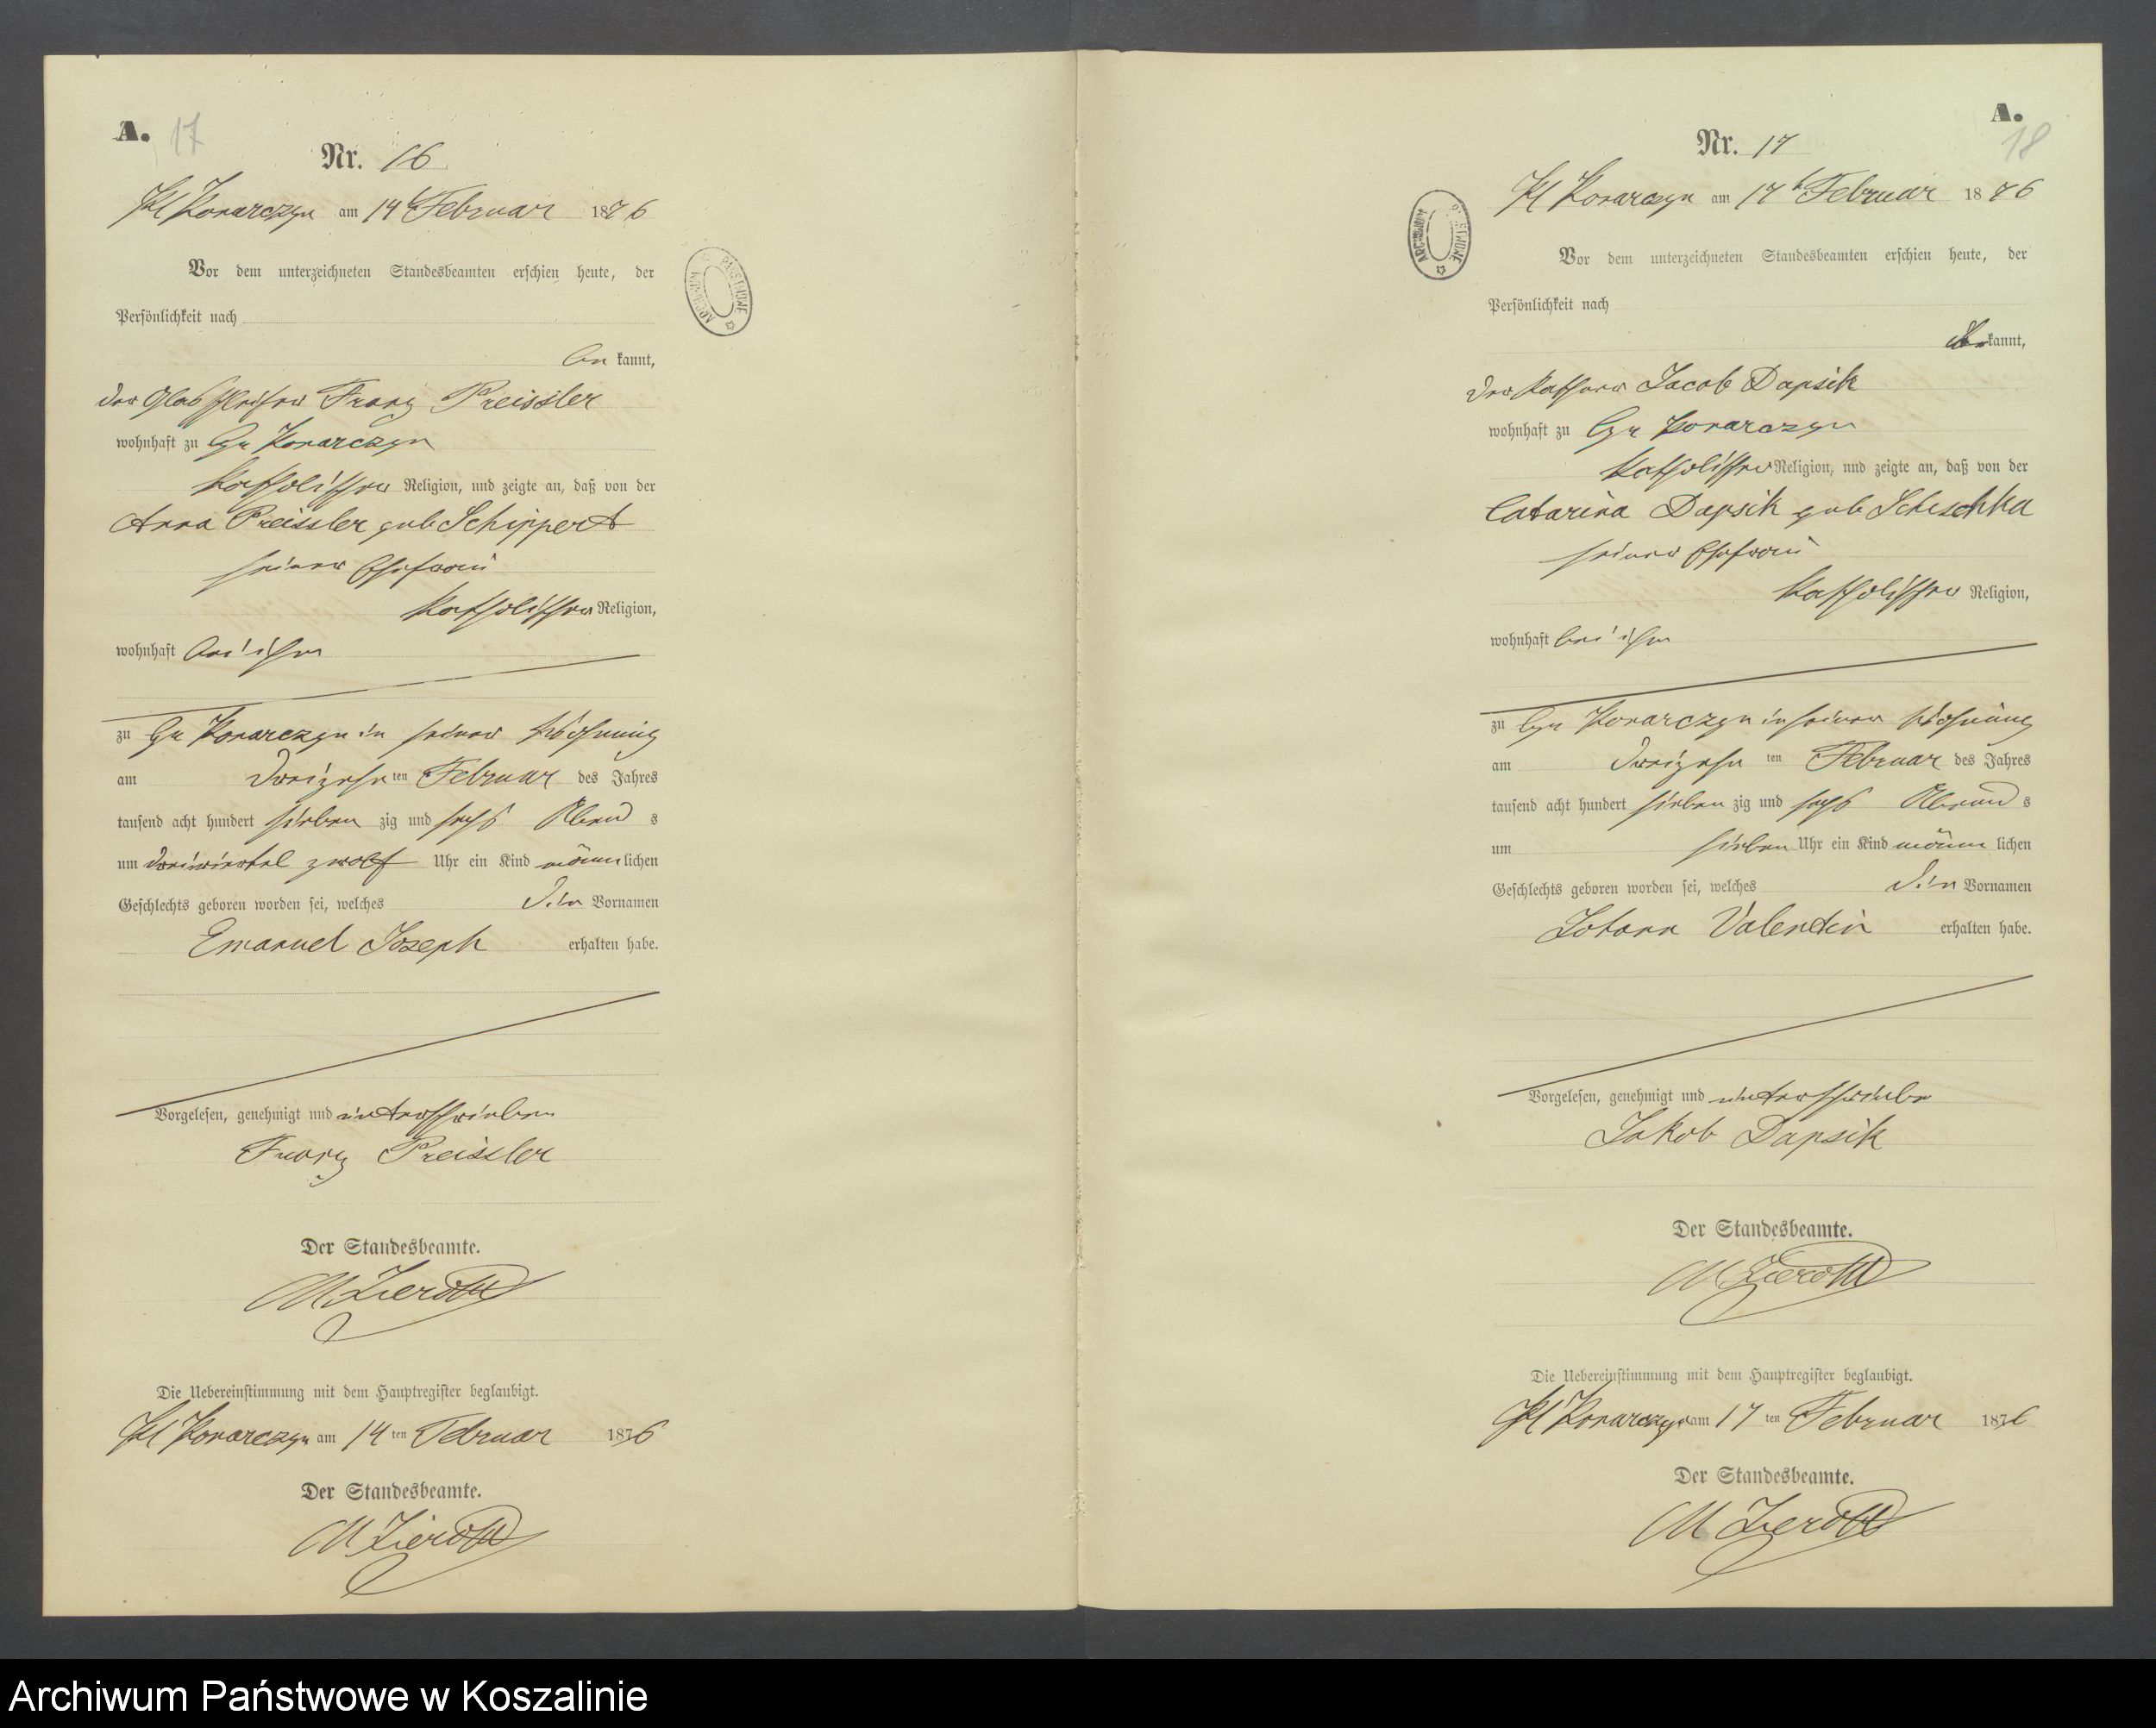 A. 17
Nr. 16
Kl Konarczyn am 14t Februar 1876
Vor dem unterzeichneten Standesbeamten erschien heute, der
Persönlichkeit nach
be kannt,
der Glasschleifer Franz Preissler
wohnhaft zu Gr Konarczyn
katholischer Religion, und zeigte an, daß von der
Anna Preissler geb Schippert
seiner Ehefrau
katholischer Religion,
wohnhaft bei ihm
zu Gr Konarczyn in seiner Wohnung
am dreizehn ten Februar des Jahres
tausend acht hundert sieben zig und sechs Abend s
um dreiviertel zwolf Uhr ein Kind männ lichen
Geschlechts geboren worden sei, welches die Vornamen
Emanuel Joseph erhalten habe.
Vorgelesen, genehmigt und unterschrieben
Franz Preissler
Der Standesbeamte.
M Zierott
Die Uebereinstimmung mit dem Hauptregister beglaubigt.
Kl Konarczyn am 14 ten Februar 1876
Der Standesbeamte.
M Zierott
ARCHIWUM PAŃSTWOWE
A.
18
Nr. 17
Kl Konarczyn am 17t Februar 1876
Vor dem unterzeichneten Standesbeamten erschien heute, der
Persönlichkeit nach
kannt,
der Jacob Dapsik
wohnhaft zu Gr Konarczyn
katholischer Religion, und zeigte an, daß von der
Catarina Dapsik geb Scheschka
seiner Ehefrau
katholischer Religion,
wohnhaft bei ihm
zu Gr Konarczyn in seiner Wohnung
am dreizehn ten Februar des Jahres
tausend acht hundert sieben zig und sechs Abend s
um sieben Uhr ein Kind männ lichen
Geschlechts geboren worden sei, welches die Vornamen
Johann Valentin erhalten habe.
Vorgelesen, genehmigt und unterschriebe
Jakob Dapsik
Der Standesbeamte.
M Zierott
Die Uebereinstimmung mit dem Hauptregister beglaubigt.
Kl Konarczyn am 17 ten Februar 1876
Der Standesbeamte.
M Zierott
ARCHIWUM PAŃSTWOWE
Archiwum Państwowe w Koszalinie